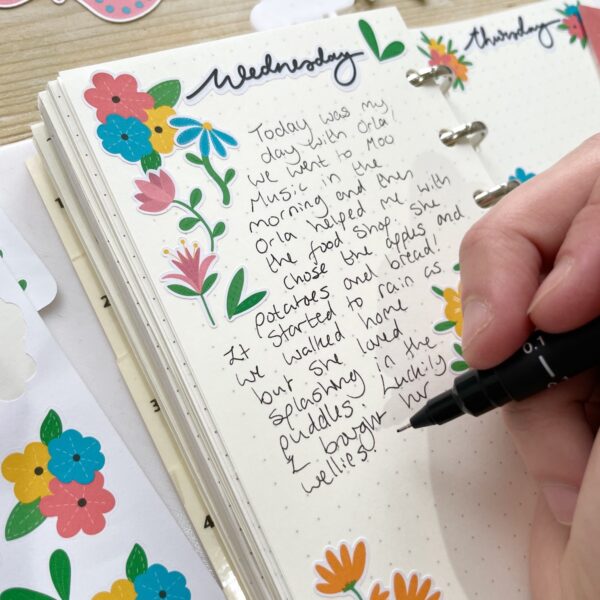 Wednesday
Today was my
day with Orla!
we went to Moo
Music in the
morning and then
Orla helped me with
the food shop. she
chose the apples and
potatoes and bread!
It started to rain as
we walked home
but she loved
splashing in the
puddles. Luckily
I bought her
wellies!
thursday
1
2
3
4
0.1
0.1